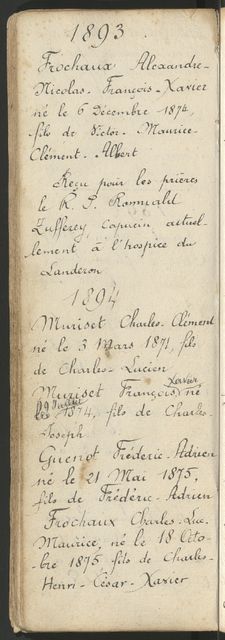 1893
Frochaux Alexandre-
Nicolas-François-Xavier
né le 6 Décembre 1874,
fils de Victor-Maurice-
Clément-Albert
Reçu pour les prières
le R. P. Romuald
Zufferey, capucin actuel-
lement à l'hospice du
Landeron
1894
Muriset Charles-Clément
né le 3 Mars 1871, fils
de Charles-Lucien
Xavier
Muriset François né
le 9 Juillet
1874, fils de Charles-
Joseph
Guenot Fréderic-Adrien
né le 21 Mai 1875,
fils de Fréderic-Adrien
Frochaux Charles-Luc-
Maurice, né le 18 Octo-
bre 1875 fils de Charles-
Henri-César-Xavier